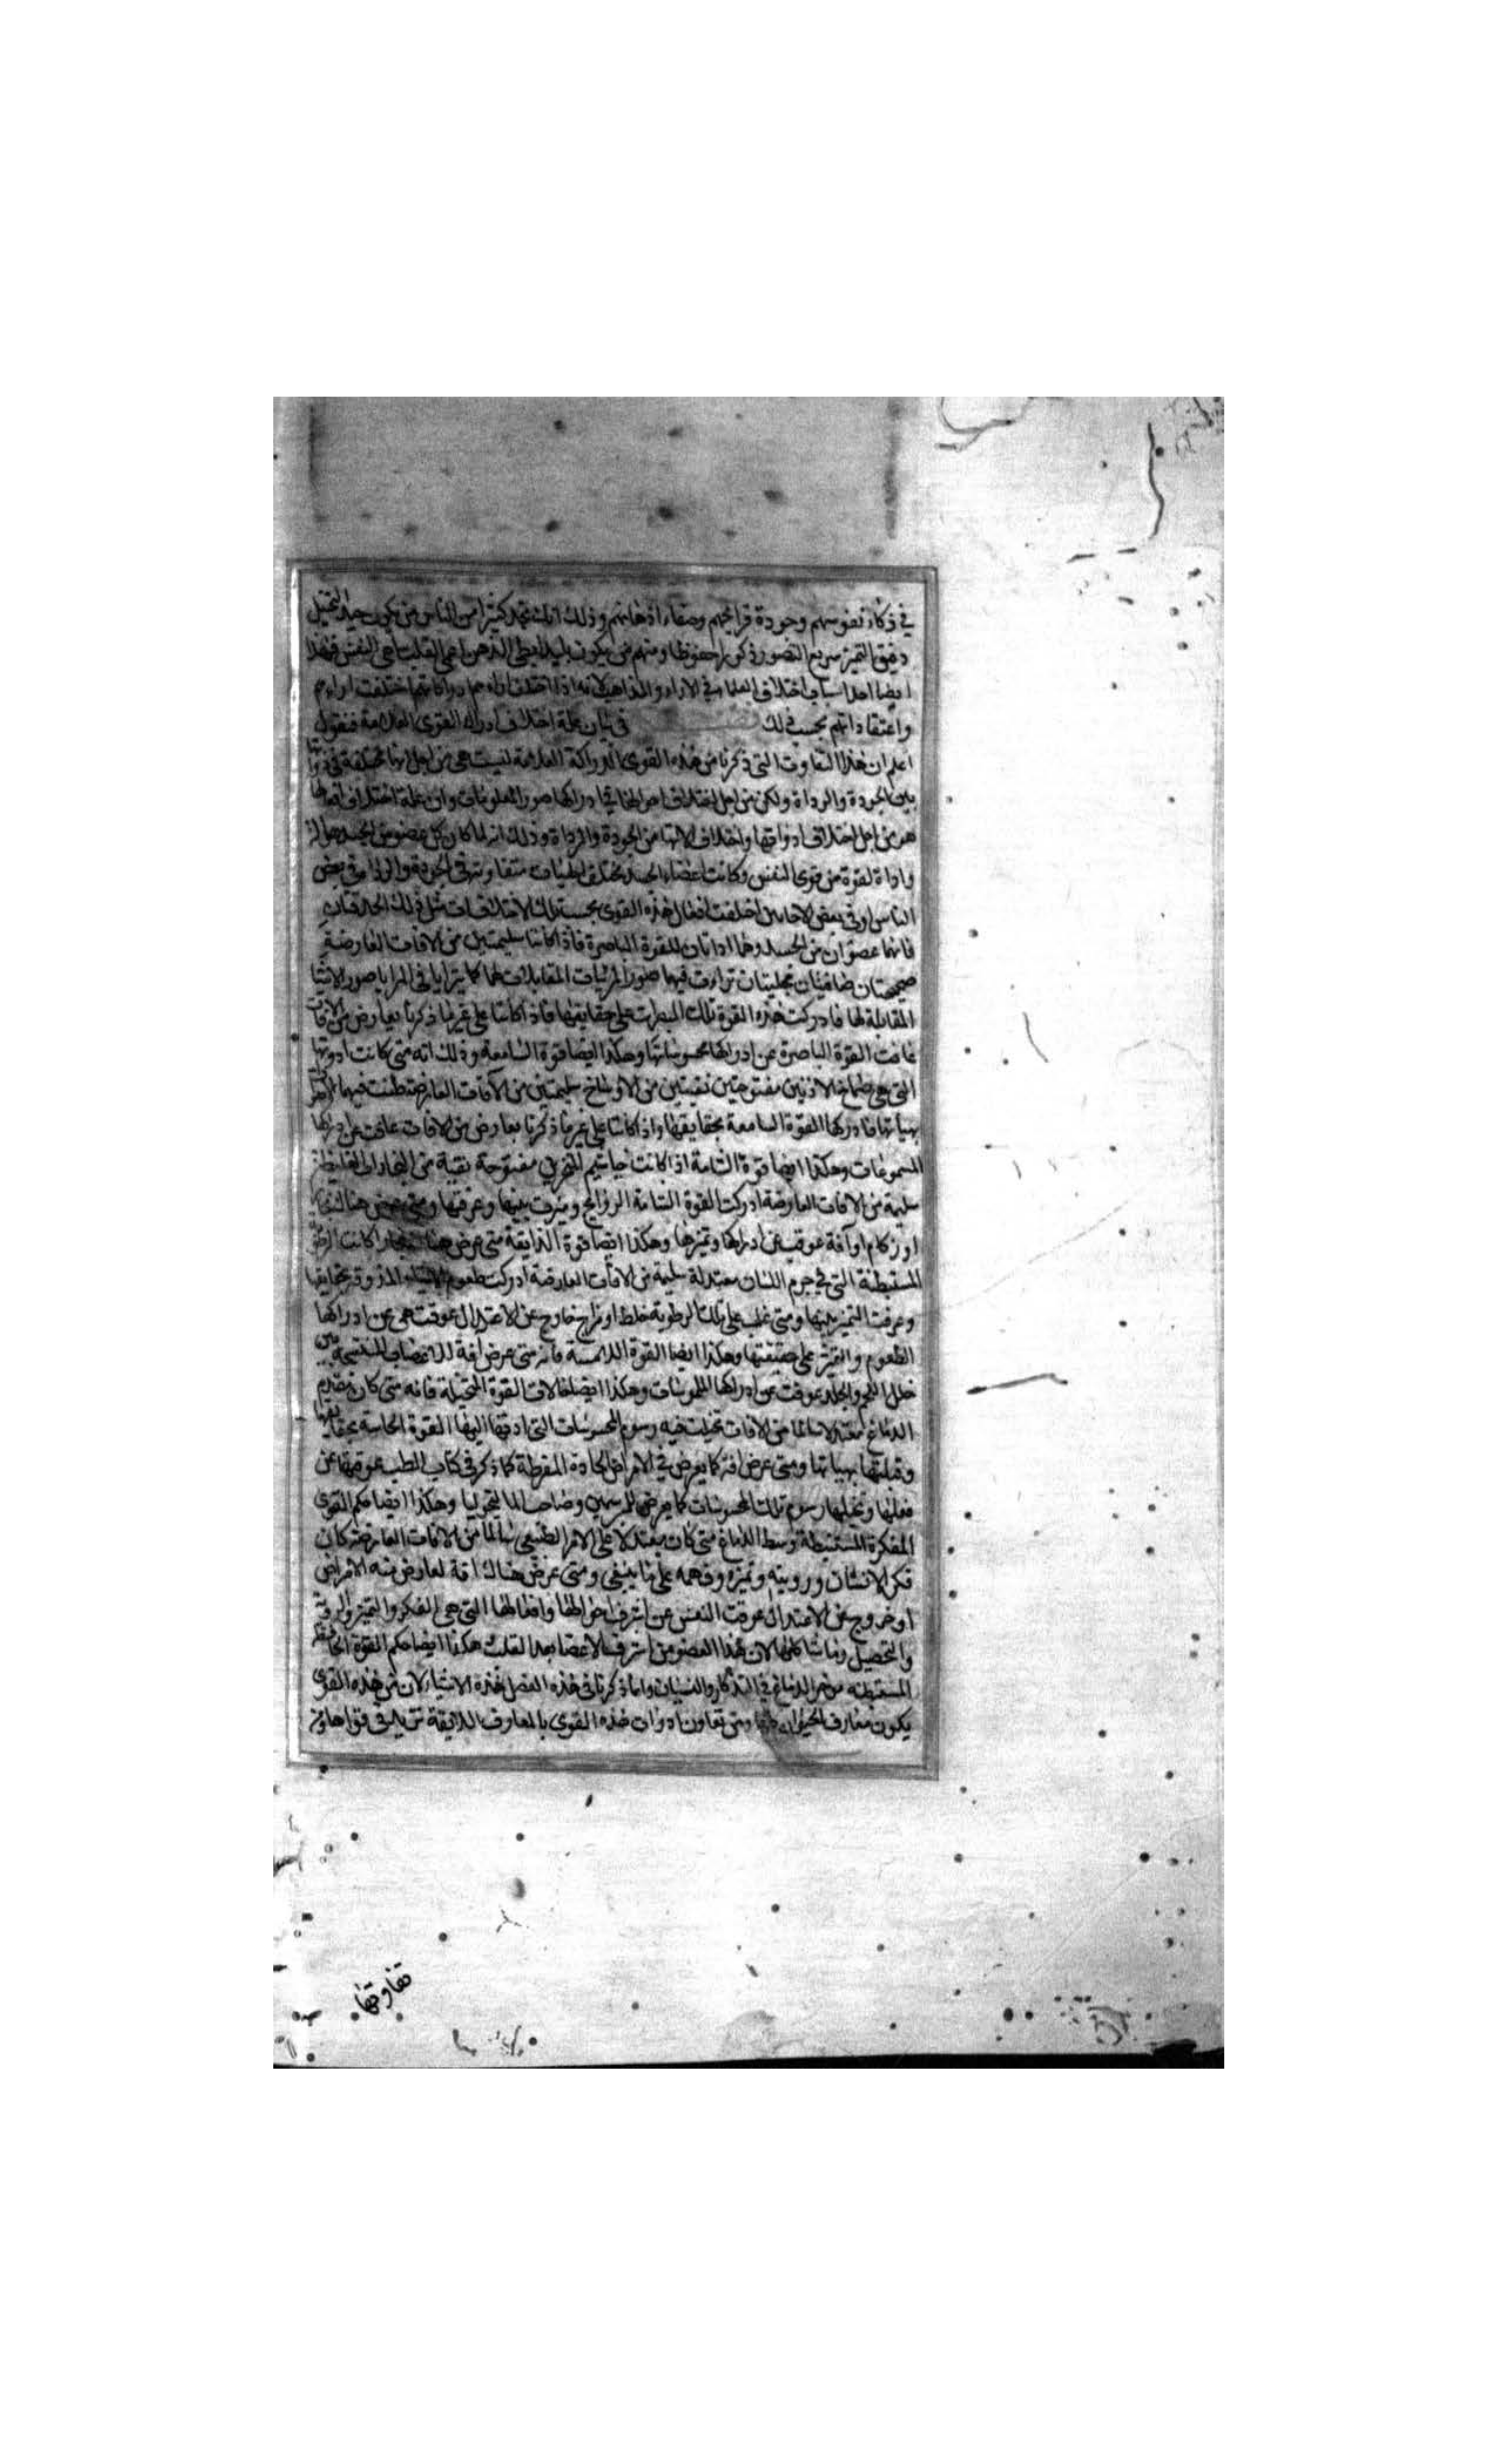 في ذكاء نفوسهم وجودة قرائحهم وصفاء اذهانهم وذلك انك تجد كثيرا من الناس من يكون جيد التخيل
دقيق التميز سريع التصور ذكورا حفوظا ومنهم من يكون بليدا بطي الذهن اعمى القلب ساهى النفس فهذا
ايضا احد اسباب اختلاف العلماء في الاراء والمذاهب لانه اذا اختلفت ادراكاتهم اختلفت اراءهم
واعتقاداتهم بحسب ذلك في بيان علة اختلاف ادراك القوى العلامة فنقول
اعلم ان هذا التفاوت التى ذكرنا من هذه القوى الدراكة العلامة ليست هى من اجل انها مختلفة في ذواتها
بين الجودة والرداة ولكن من اجل اختلاف احوالها في ادراكها صور المعلومات وان علة اختلاف افعالها
هو من اجل اختلاف ادواتها واختلاف الاتها من الجودة والرداة وذلك انه لما كان كل عضو من الجسد هو الة
واداة لقوة من قوى النفس وكانت اعضاء الجسد مختلف الهيئات متفاوتة في بعض
الناس او في بعض الاحايين اختلفت افعال هذه القوى بحسب تلك الاختلافات مثل ذلك الحدقتان
فانهما عضوان من الجسد وهما اداتان للقوة الباصرة فاذا كانتا سليمتين من الافات العارضة
صحيحتان صافيتان مجليتان تراءت فيهما صور المرئيات المقابلات لهما كما يترايا في المرايا صور الاشيا
المقابلة لها فادركت هذه القوة تلك المبصرات على حقايقها فاذا كانتا على غير ما ذكرنا بعارض من الافات
عاقت القوة الباصرة عن ادراكها محسوساتها وهكذا ايضا قوة السامعة وذلك انه متى كانت ادوتها
التى هى صماخا الاذنين مفتوحتين نقيتين من الاوساخ سليمتين من الآفات العارضة طنت فيهما
بهيأتها فادركها القوة السامعة بحقايقها واذا كانتا على غير ما ذكرنا بعارض من الافات عاقت عن ادراكها
المسموعات وهكذا ايضا قوة الشامة اذا كانت خياشيم المنخرين مفتوحة نقية من البخارات الغليظة
سليمة من الافات العارضة ادركت القوة الشامة الروايح وميزت بينها وعرفتها ومتى عرض هناك
او زكام او آفة عوقت عن ادراكها وتميزها وهكذا ايضا قوة الذايقة متى كانت الرطوبة
المستبطنة التى في جرم اللسان معتدلة سليمة من الافات العارضة ادركت طعوم الاشياء المذوقة بحقايقها
وعرفت التميز بينها ومتى غلب على تلك الرطوبة خلط او مزاج خارج عن الاعتدال عوقت هى عن ادراكها
الطعوم والتميز على حقيقتها وهكذا ايضا القوة اللامسة فانه متى عرض افة للاعضاب المنتسجة بين
خلل اللحم والجلد عوقت عن ادراكها الملموسات وهكذا ايضا حالات القوة المتخيلة فانه متى كان مقدم
الدماغ معتدلا سالما من الافات تخيلت فيه رسوم المحسوسات التى ادتها اليها القوة الحاسة بحقايقها
وقبلتها بهياتها ومتى عرض افة كما يعرض في الامراض الحادة المفرطة كما ذكر في كتاب الطب عوقتها عن
فعلها وتخيلها رسوم تلك المحسوسات كما يعرض للمبرسمين وصاحب الماليخوليا وهكذا ايضا حكم القوى
المفكرة المستبطنة وسط الدماغ متى كان معتدلا على الامر الطبيعى سالما من الافات العارضة كان
فكر الانسان ورويته وتميزه وفهمه على ما ينبغى ومتى عرض هناك افة لعارض من الامراض
او خروج عن الاعتدال عوقت النفس عن اشرف احوالها وافعالها التى هى الفكر والتميز والروية
والتحصيل وما شاكلها لان هذا العضو من اشرف الاعضا بعد القلب هكذا ايضا حكم القوة الحافظة
المستبطنه مؤخر الدماغ في التذكار والنسيان وانما ذكرنا في هذه الفصل هذه الاشياء لان من هذه القوى
يكون معارف الحيوان ومتى تعاون ادوات هذه القوى بالمعارف
تفاوتها